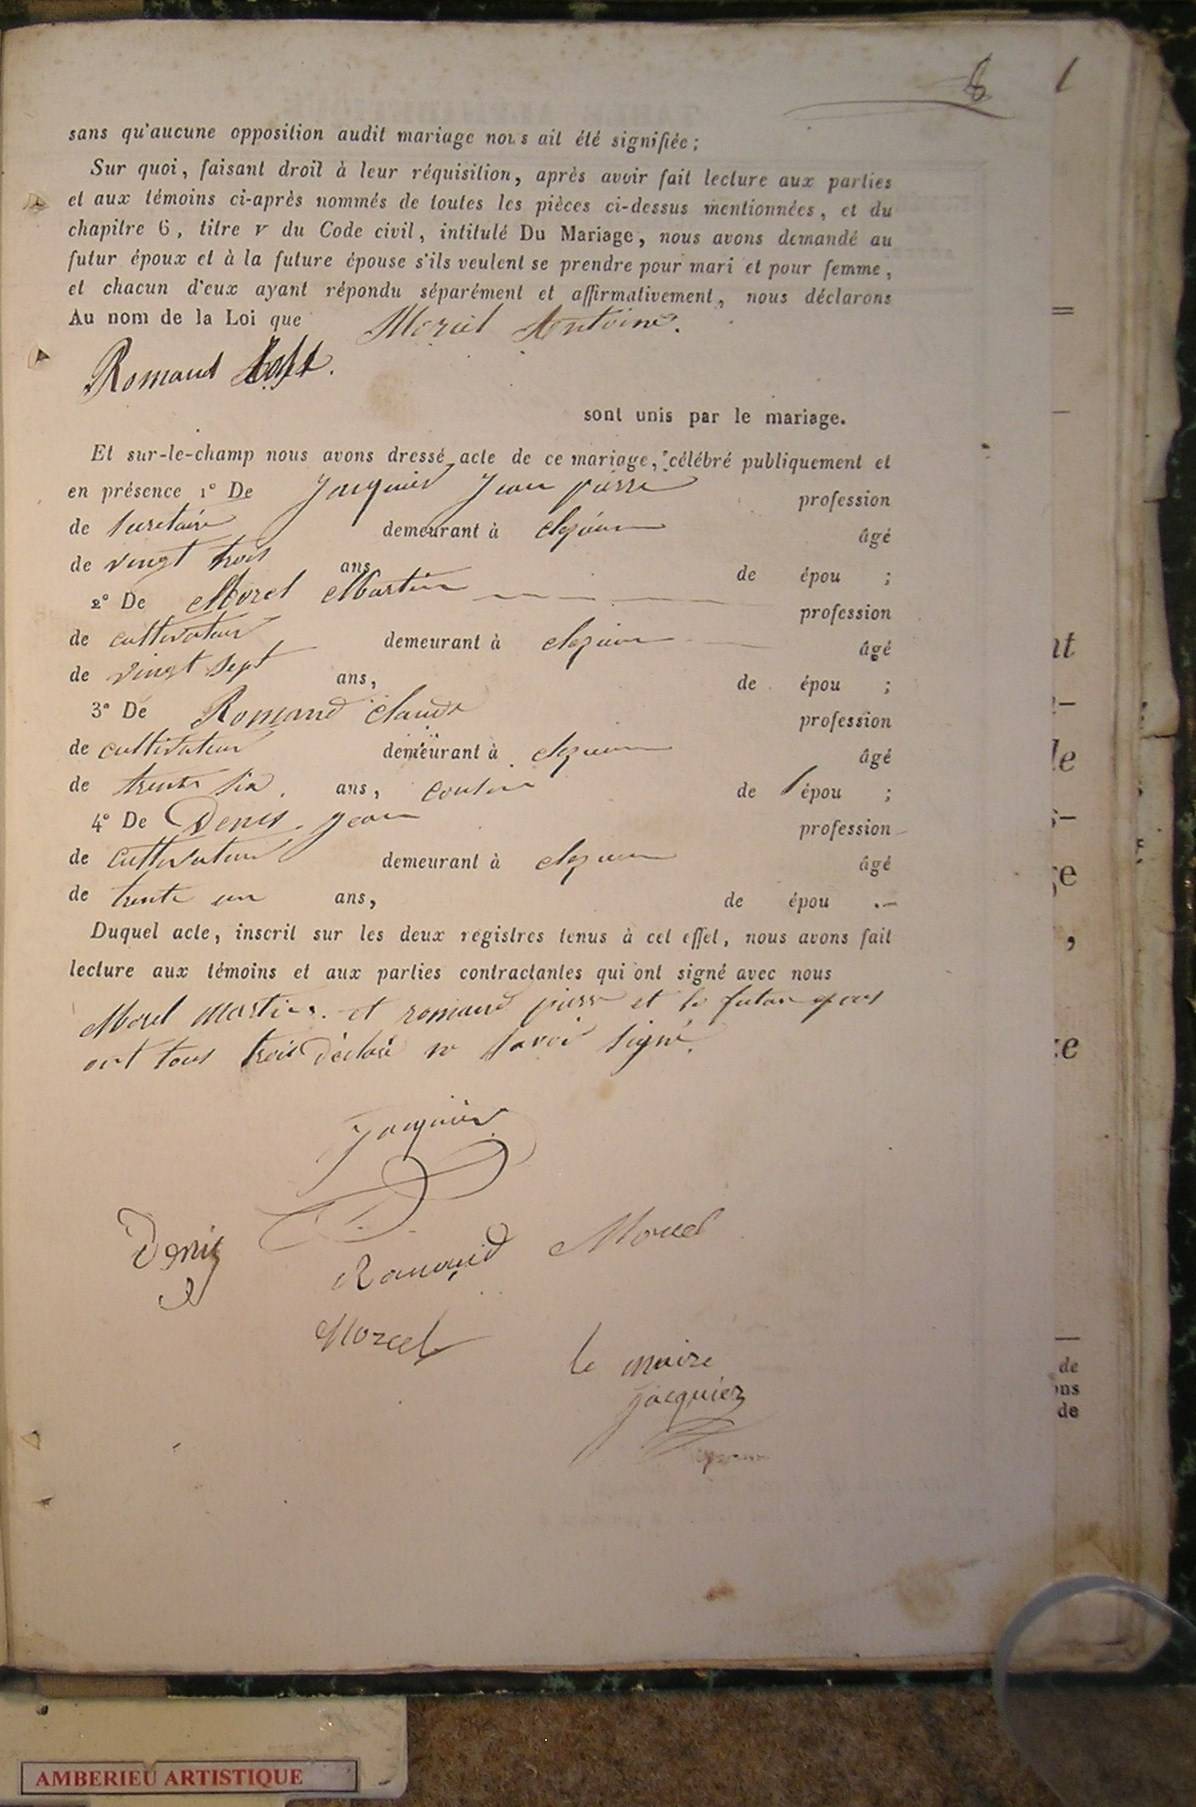 8
sans qu'aucune opposition audit mariage nous ait été signifiée ;
Sur quoi, faisant droit à leur réquisition, après avoir fait lecture aux parties
et aux témoins ci-après nommés de toutes les pièces ci-dessus mentionnées, et du
chapitre 6, titre V du Code civil, intitulé Du Mariage, nous avons demandé au
futur époux et à la future épouse s'ils veulent se prendre pour mari et pour femme,
et chacun d'eux ayant répondu séparément et affirmativement, nous déclarons
Au nom de la Loi que Morel Antoine.
Romand
sont unis par le mariage.
Et sur-le-champ nous avons dressé acte de ce mariage, célébré publiquement et
en présence 1° De Jacquier Jean pierre profession
de secretaire demeurant à âgé
de vingt trois ans de épou ;
2° De Morel Martin profession
de cultivateur demeurant à âgé
de vingt sept ans, de épou ;
3° De Romand Claude profession
de cultivateur demeurant à âgé
de trente six. ans, cousin de l'épou ;
4° De Denis Jean profession
de cultivateur demeurant à âgé
de trente un ans, de épou .
Duquel acte, inscrit sur les deux registres tenus à cet effet, nous avons fait
lecture aux témoins et aux parties contractantes qui ont signé avec nous
Morel Martin. et romand pierre et la future
ont tous trois déclaré ne savoir signé.
Jacquier
Denis
Romand Morel
Morel
le maire
Jacquier
AMBERIEU ARTISTIQUE